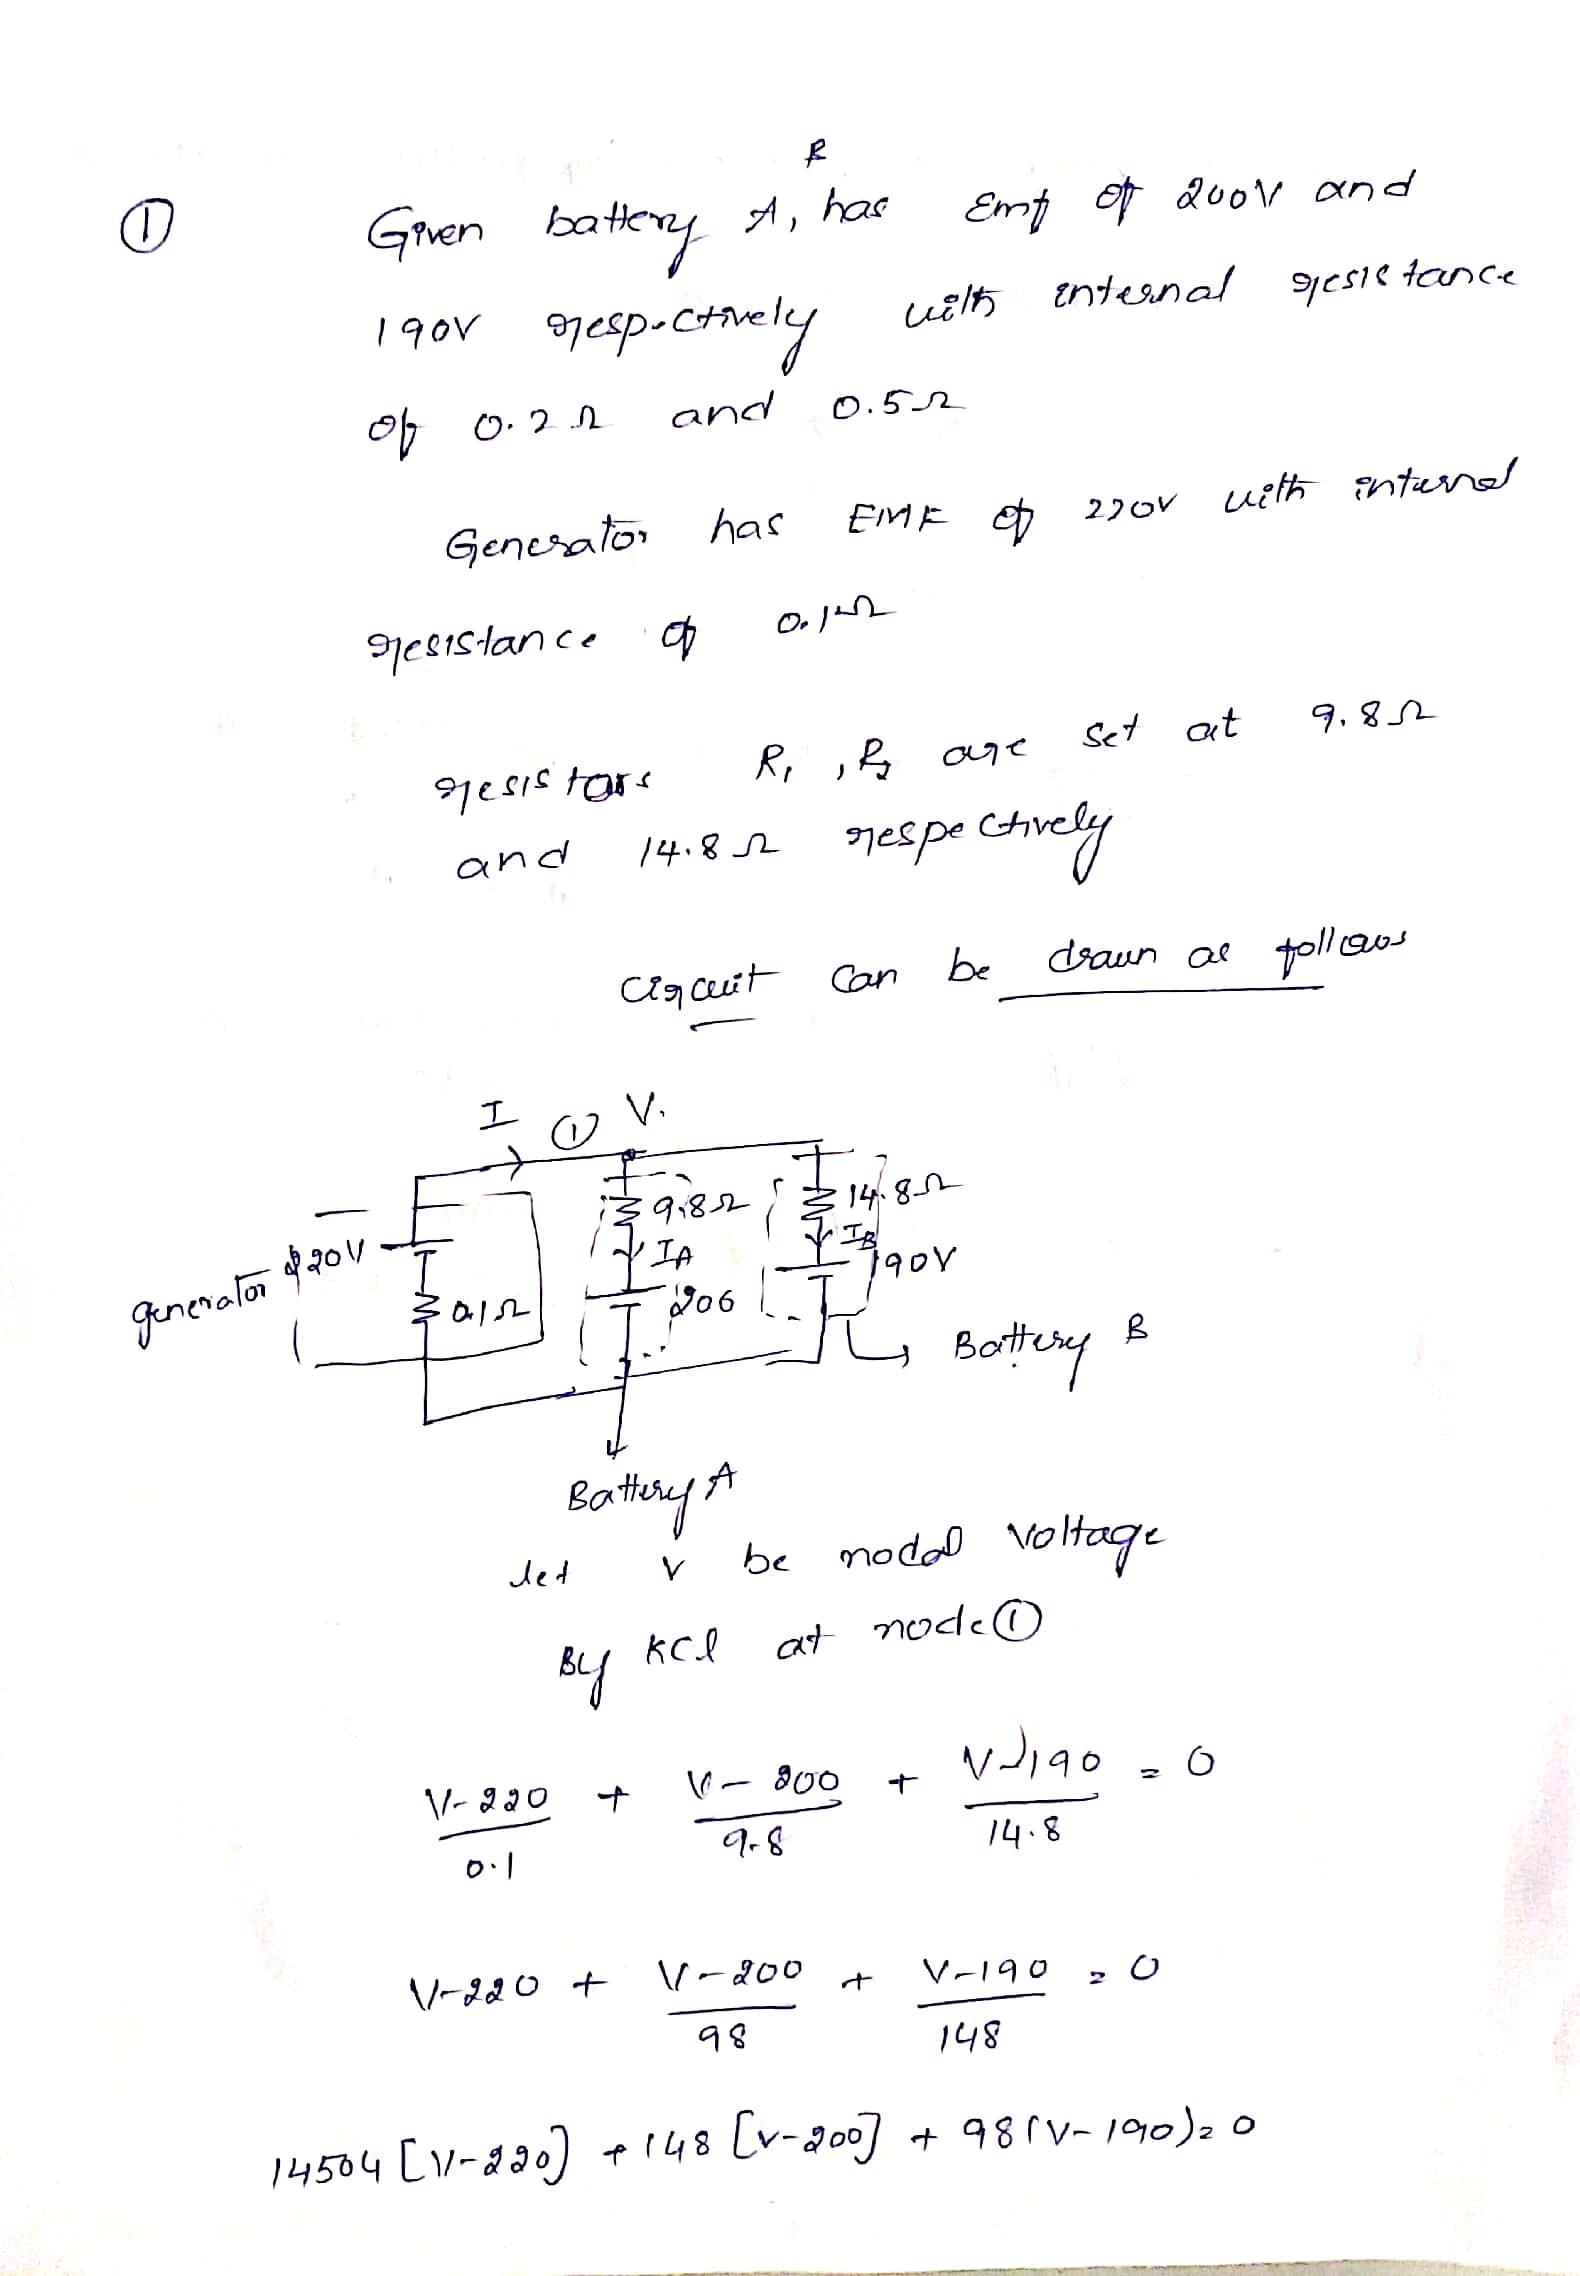 B
① Given battery A, has Emf of 200V and
190V respectively with internal resistance
of 0.2Ω and 0.5Ω
Generator has EMF of 220V with internal
resistance of 0.1Ω
resistors R₁, R₂ are set at 9.8Ω
and 14.8Ω respectively
Circuit can be drawn as follows
I ① V.
9.8Ω 14.8Ω
IA IB
generator 220V 190V
0.1Ω 200
Battery B
Battery A
let V be nodal voltage
By KCl at node ①
V-220/0.1 + V-200/9.8 + V-190/14.8 = 0
V-220 + V-200/98 + V-190/148 = 0
14504 [V-220] + 148 [V-200] + 98(V-190) = 0